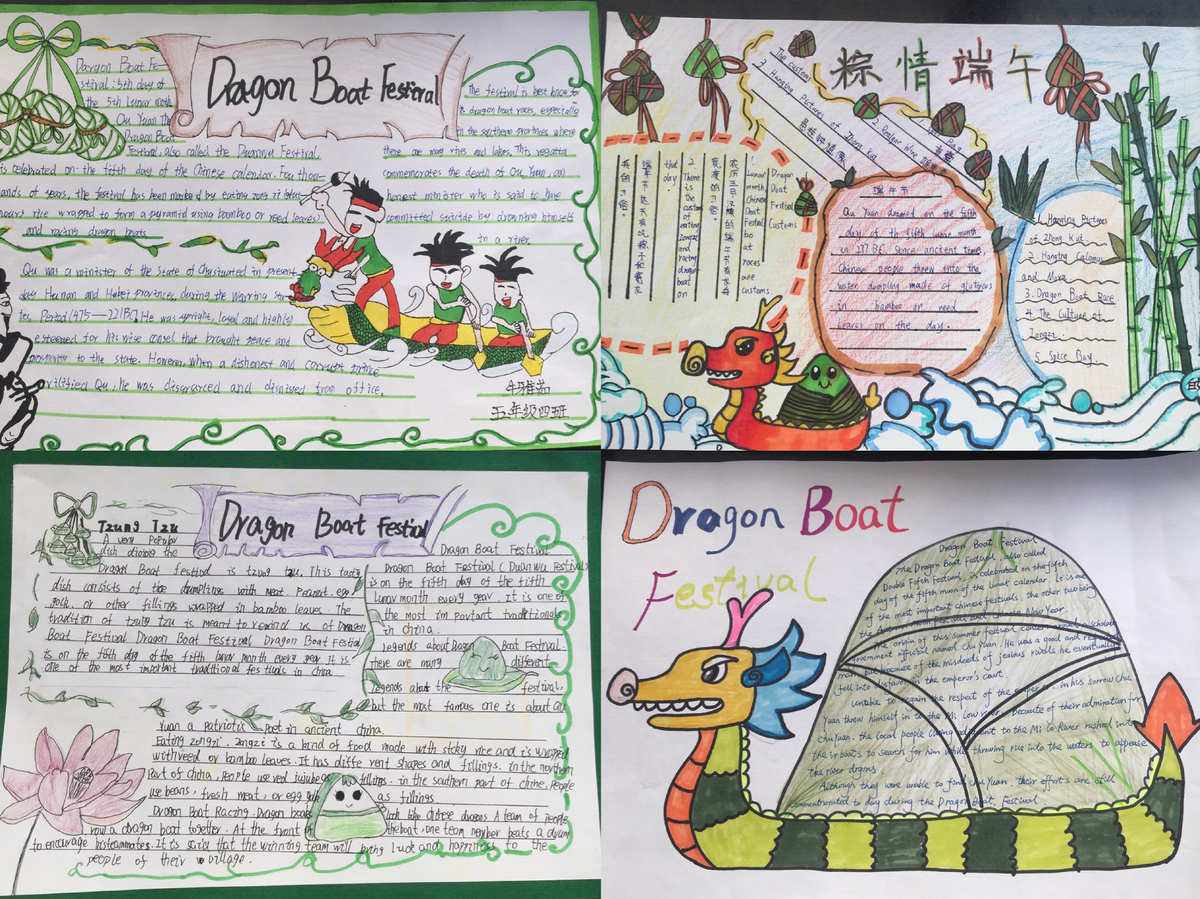 Dragon Boat Festival
Dargon Boat Fe-
stival :5th day of
the 5th lunar month
Qu Yuan The
Dragon Boat
Festival, also called the Duanwu Festival,
is celebrated on the fifth day of the Chinese calendar. For thou-
ands of years, the festival has been marked by eating
rice wrapped to form a pyramid using bamboo or reed leaves
and racing dragon boats
Qu was a minister of the State of Chu situated in present-
day Hunan and Hubei provinces, during the Warring
Period (475——221BC). He was upright, loyal and highly
esteemed for his wise counsel that brought peace and
to the state. However, when a dishonest and corrupt prince
vilified Qu, he was disgraced and dismissed from office.
The festival is best
dragon boat races, especially
in the southern provinces where
there are many rivers and lakes. This regatta
commemorates the death of Qu Yuan, an
honest minister who is said to have
committed suicide by drowning himself
in a river.
五年级四班
粽情端午
The customs
3. Hanging Pictures of Zhong Kui
悬挂钟馗像
2. Realgar Wine
Dragon Boat Festival Customs
1. Lunar month Chinese Boat Festival boat races are customs
2. There is the custom of eating zongzi and racing dragon boat on that day.
端午节
Qu Yuan drowned on the fifth
day of th fifth lunar month
in 277 BC. Since ancient time,
Chinese people threw into the
water dumpling made of glutinous
in bamboo or reed
leaves on the day.
1. Hanging Pictures
of Zhong Kui
2. Hanging Calamus
and Moxa
3. Dragon Boat Race
4. The Culture of
Zongzi
5. Spice Bag
Dragon Boat Festival
Tzung Tzu
A very Popular
dish during the
Dragon Boat festival is tzung tzu. This tasty
dish consists of rice dumplings with meat, Peanut, egg
yolk, or other fillings wrapped in bamboo leaves. The
tradition of tzung tzu is meant to remind us of Dragon
Boat Festival Dragon Boat Festival Dragon Boat Festival
is on the fifth day of the fifth lunar month every year. It is
one of the most important traditional festivals in china
Dragon Boat Festival
Dragon Boat Festival (Duanwu Festival)
is on the fifth day of the fifth
lunar month every year. It is one of
the most im portant traditional
in china.
legends about Dragon Boat Festival
there are many different
legends about the festival.
but the most famous one is about Qu
Yuan a patriotic poet in ancient china.
Eating zongzi. zongzi is a kind of food made with sticky rice and is wrapped
with reed or bamboo leaves. It has diffe rent shapes and fillings. in the northern
Part of china, People use red jujube as fillings. in the southern part of chine. People
use beans, fresh meat, or egg yolk as fillings
Dragon Boat Racing Dragon boats look like chinese dragons. A team of people
row a dragon boat together. At the front of the boat, one team member beats a drum
to encourage histeammates. It is said that the winning team will bring luck and happiness to the
people of their village.
Dragon Boat
Festival
Dragon Boat Festival
The Dragon Boat Festival, also called
Double Fifth Festival, is celebrated on the fifth
day of the fifth moon of the lunar calendar. It is one
of the most important chinese festivals, the other two being
the Autumn Moon Festival and chinese New Year.
The origin of this summer festival centers around a scholarly
government official named Chu Yuan. He was a good and respected
man, but because of the misdeeds of jealous rivals he eventually
fell into disfavor in the emperor's court.
Unable to regain the respect of the emperor, in his sorrow Chu
Yuan threw himself in to the Mi Low river. Because of their admiration for
chu Yuan, the local people living adjacent to the Mi Lo River rushed into
their boats to search for him while throwing rice into the waters to appease
the river dragons.
Although they were unable to find chu Yuan, their efforts are still
commemorated to day during the Dragon Boat Festival